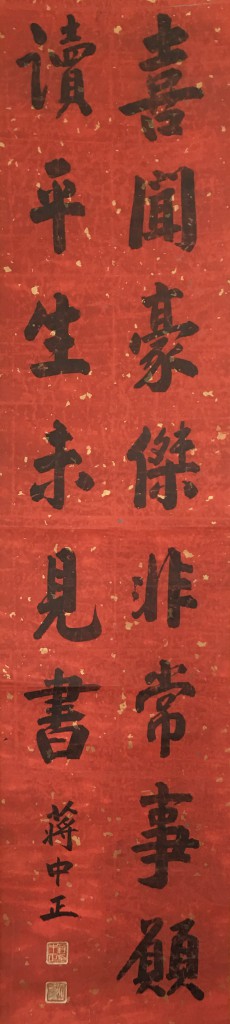 喜聞豪傑非常事願
讀平生未見書
蔣中正